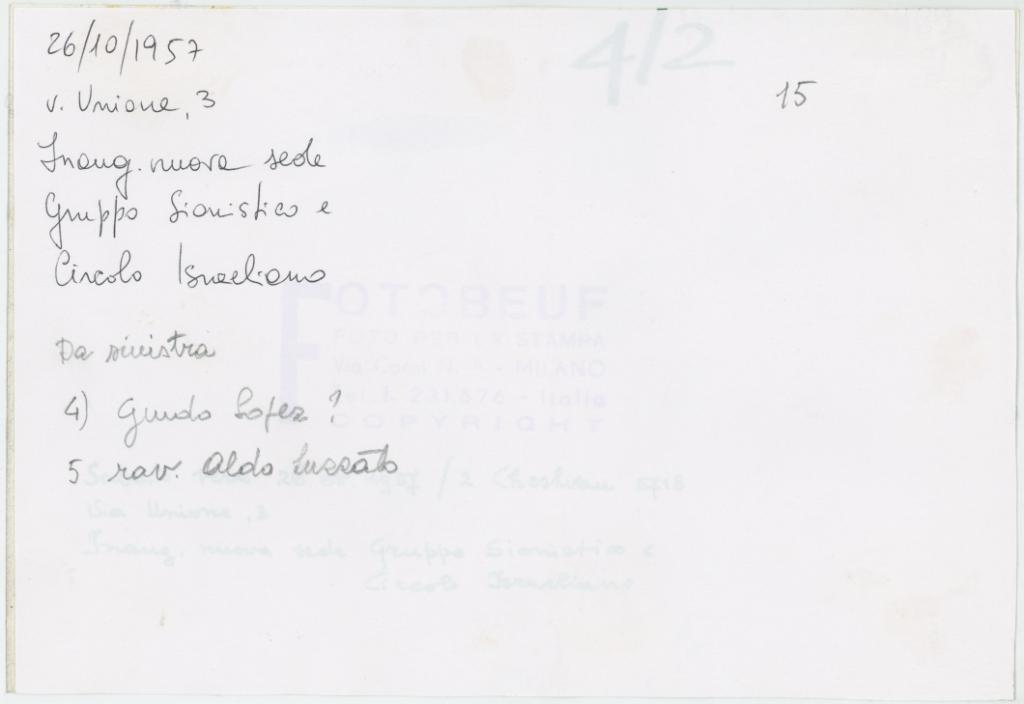 26/10/1957
4/2
15
v. Unione, 3
Inaug. nuova sede
Gruppo Sionistico e
Circolo Israeliano
FOTOBEUF
FOTO PER LA STAMPA
Da sinistra
Via N. - MILANO
Tel. 231.676 - Italia
4) Guido Lopez ?
COPYRIGHT
5 rav. Aldo Luzzato
26 1957 / 2 Cheshvan 5718
Via Unione, 3
Inaug. nuova sede Gruppo Sionistico e
Circolo Israeliano